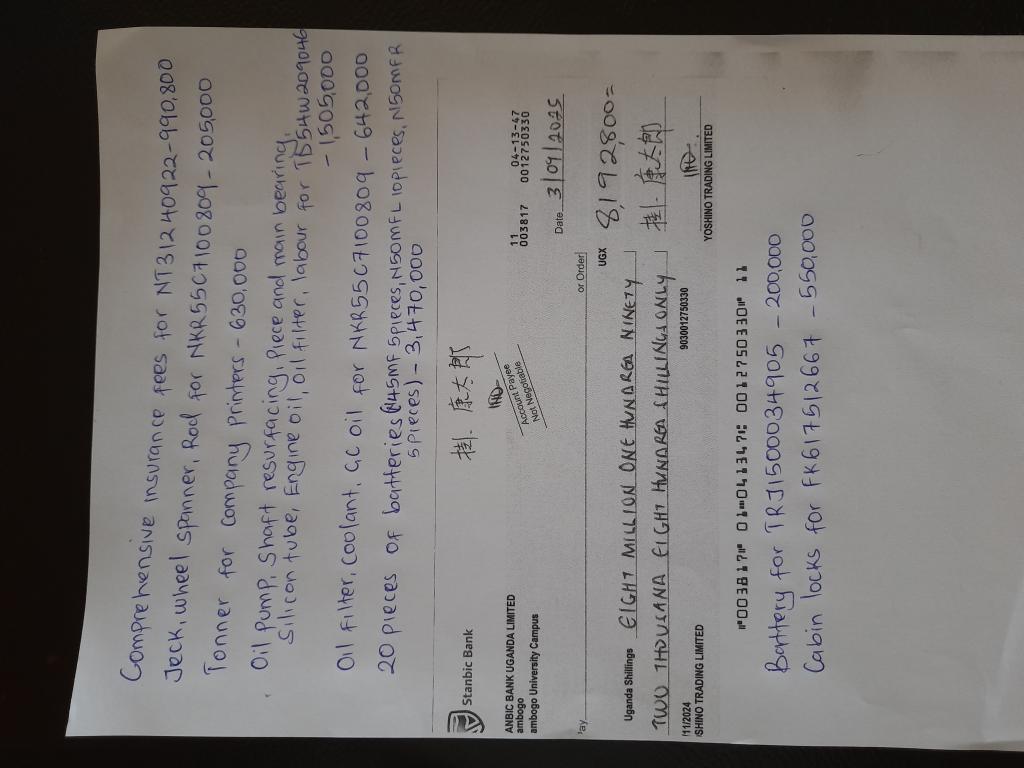 Comprehensive insurance fees for NT31240922-990,800
Jeck, wheel spanner, Rod for NKR55C7100809 - 205,000
Tonner for company printers - 630,000
Oil pump, Shaft resurfacing, Piece and main bearing,
Silicon tube, Engine oil, oil filter, labour for TD54W209046
- 1,505,000
Oil filter, Coolant, GC oil for NKR55C7100809 - 642,000
20 pieces of batteries (N45MF 5pieces, N50MFL 10pieces, N50MFR
5pieces) - 3,470,000
Stanbic Bank
掛 康太郎
ANBIC BANK UGANDA LIMITED
ambogo
ambogo University Campus
Account Payee
Not Negotiable
11 04-13-47
003817 0012750330
Date 3/09/2025
ay
or Order
Uganda Shillings EIGHT MILLION ONE HUNDRED NINETY
UGX 8,192,800=
TWO THOUSAND EIGHT HUNDRED SHILLINGS ONLY
掛 康太郎
11/2024
SHINO TRADING LIMITED
9030012750330
YOSHINO TRADING LIMITED
"003817" 01"041347: 0012750330" 11
Battery for TRJ1500034905 - 200,000
Cabin locks for FK617512667 - 550,000